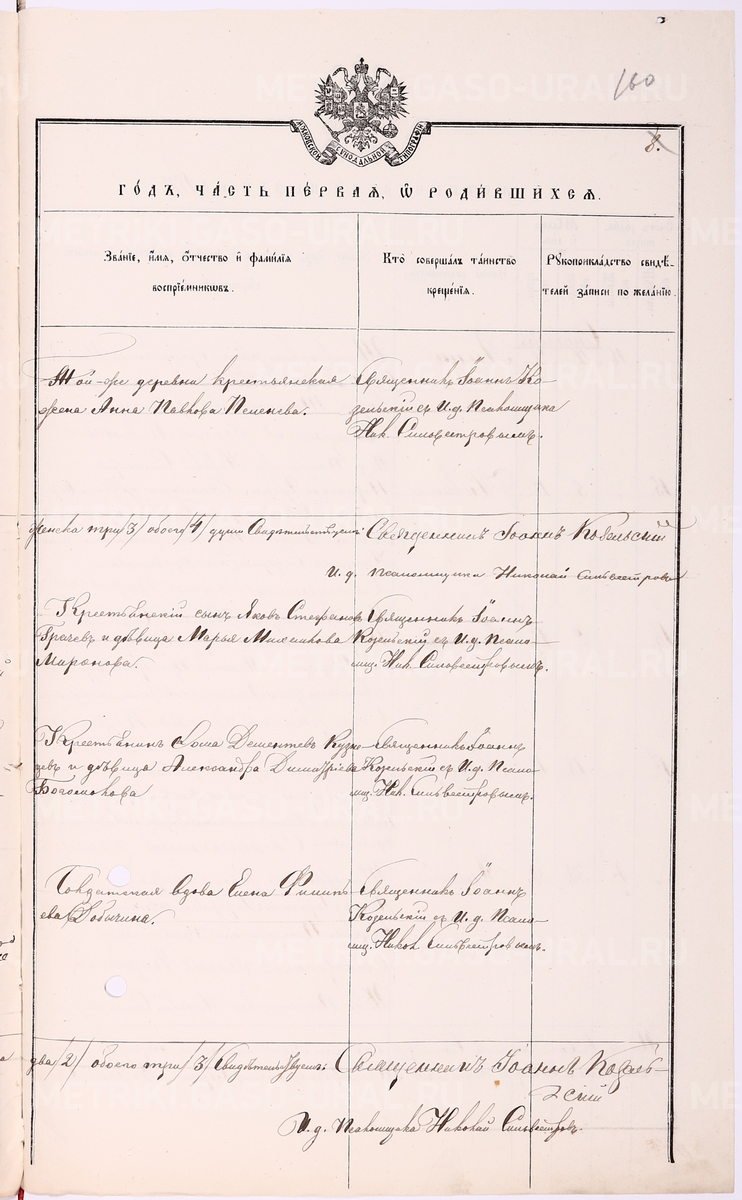 160
8.
МОСКОВСКОЙ СѴНОДАЛЬНОЙ ТИПОГРАФІИ
ГО́ДЪ, ЧА́СТЬ ПЕ́РВАЯ, Ѡ РОДИ́ВШИХСЯ.
Зва́ніе, и҆́мя, ѻ҆́тчество и҆ фами́лія
воспріе́мникѡвъ.
Кто̀ соверша́лъ та́инство
креще́нія.
Рꙋкоприкла́дство свидѣ́-
телей за́писи по жела́нію.
Той-же деревни крестьянская
жена Анна Павлова
Священникъ Іоаннъ Ко-
зельскій съ И. д. Псаломщика
Ник. Сильвестровымъ.
женска три /3/ обоего /4/ души Свидѣтельствуемъ:
Священникъ Іоаннъ Козельскій
И. д. Псаломщика Николай Сильвестровъ
Крестьянскій сынъ Яковъ Стефановъ
Грачевъ и дѣвица Марья Михаилова
Миронова.
Священникъ Іоаннъ
Козельскій съ И. д. Псало-
мщ. Ник. Сильвестровымъ.
Крестьянинъ Дементьевъ Кузне-
цовъ и дѣвица Александра Димитріева
Богомолова
Священникъ Іоаннъ
Козельскій съ И. д. Псало-
мщ. Ник. Сильвестровымъ.
Солдатская вдова Елена Филипь-
ева Лобычина.
Священникъ Іоаннъ
Козельскій съ И. д. Псало-
мщ. Никол. Сильвестровымъ.
два /2/ обоего три /3/ Свидѣтельствуемъ:
Священникъ Іоаннъ Козель-
скій
И. д. Псаломщика Николай Сильвестровъ.
METRIKI.GASO-URAL.RU